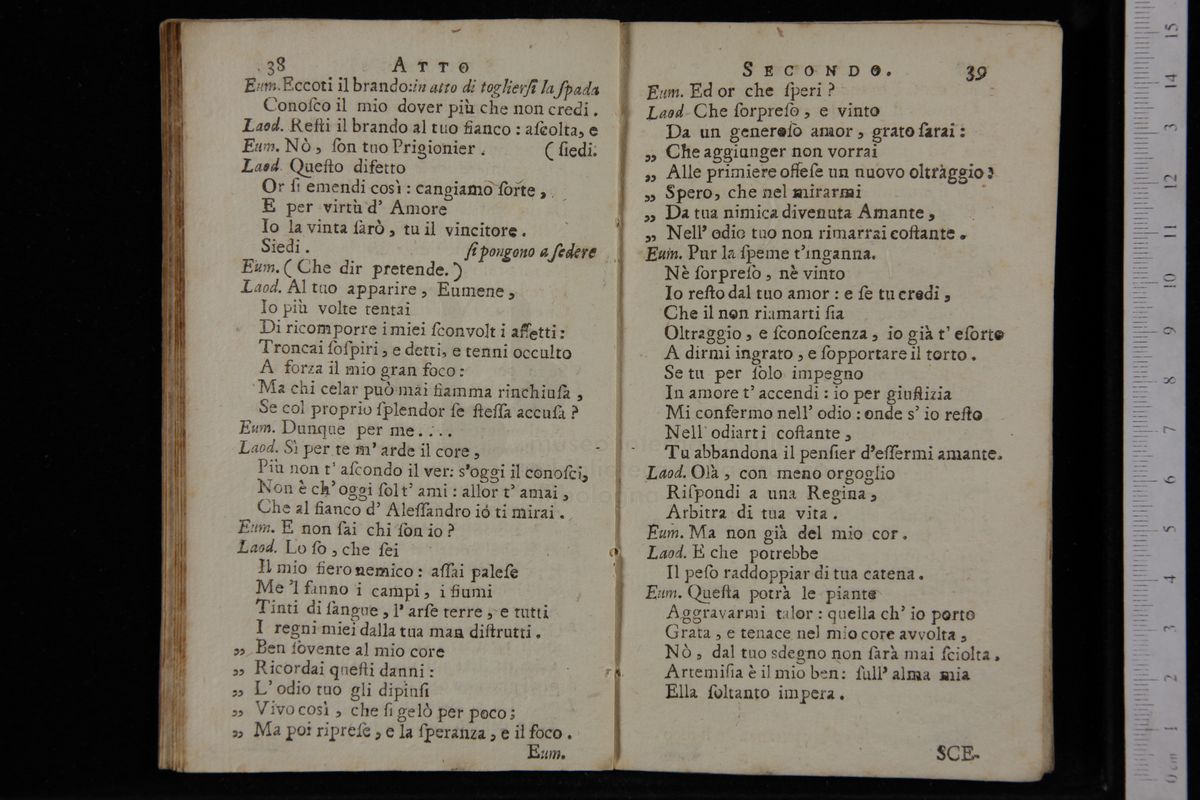 38 ATTO
Eum. Eccoti il brando: in atto di toglierſi la ſpada
Conoſco il mio dover più che non credi.
Laod. Reſti il brando al tuo fianco: aſcolta, e
Eum. Nò, ſon tuo Prigionier. (ſiedi.
Laod. Queſto difetto
Or ſi emendi così: cangiamo ſorte,
E per virtù d' Amore
Io la vinta ſarò, tu il vincitore.
Siedi. ſi pongono a ſedere
Eum. (Che dir pretende.)
Laod. Al tuo apparire, Eumene,
Io più volte tentai
Di ricomporre i miei ſconvolt i affetti:
Troncai ſoſpiri, e detti, e tenni occulto
A forza il mio gran foco:
Ma chi celar può mai fiamma rinchiuſa,
Se col proprio ſplendor ſe ſteſſa accuſa?
Eum. Dunque per me....
Laod. Sì per te m' arde il core,
Più non t' aſcondo il ver: s'oggi il conoſci,
Non è ch' oggi ſol t' ami: allor t' amai,
Che al fianco d' Aleſſandro iò ti mirai.
Eum. E non ſai chi ſon io?
Laod. Lo ſo, che ſei
Il mio fiero nemico: aſſai paleſe
Me 'l fanno i campi, i fiumi
Tinti di ſangue, l' arſe terre, e tutti
I regni miei dalla tua man diſtrutti.
„ Ben ſovente al mio core
„ Ricordai queſti danni:
„ L' odio tuo gli dipinſi
„ Vivo così, che ſi gelò per poco;
„ Ma poi ripreſe, e la ſperanza, e il foco.
Eum.
SECONDO. 39
Eum. Ed or che ſperi?
Laod. Che ſorpreſo, e vinto
Da un generoſo amor, grato ſarai:
„ Che aggiunger non vorrai
„ Alle primiere offeſe un nuovo oltràggio;
„ Spero, che nel mirarmi
„ Da tua nimica divenuta Amante,
„ Nell' odio tuo non rimarrai coſtante.
Eum. Pur la ſpeme t'inganna.
Nè ſorpreſo, nè vinto
Io reſto dal tuo amor: e ſe tu credi,
Che il non riamarti ſia
Oltraggio, e ſconoſcenza, io già t' eſorto
A dirmi ingrato, e ſopportare il torto.
Se tu per ſolo impegno
In amore t' accendi: io per giuſtizia
Mi confermo nell' odio: onde s' io reſto
Nell' odiarti coſtante,
Tu abbandona il penſier d'eſſermi amante.
Laod. Olà, con meno orgoglio
Riſpondi a una Regina,
Arbitra di tua vita.
Eum. Ma non già del mio cor.
Laod. E che potrebbe
Il peſo raddoppiar di tua catena.
Eum. Queſta potrà le piante
Aggravarmi talor: quella ch' io porto
Grata, e tenace nel mio core avvolta,
Nò, dal tuo sdegno non ſarà mai ſciolta.
Artemiſia è il mio ben: ſull' alma mia
Ella ſoltanto impera.
SCE-